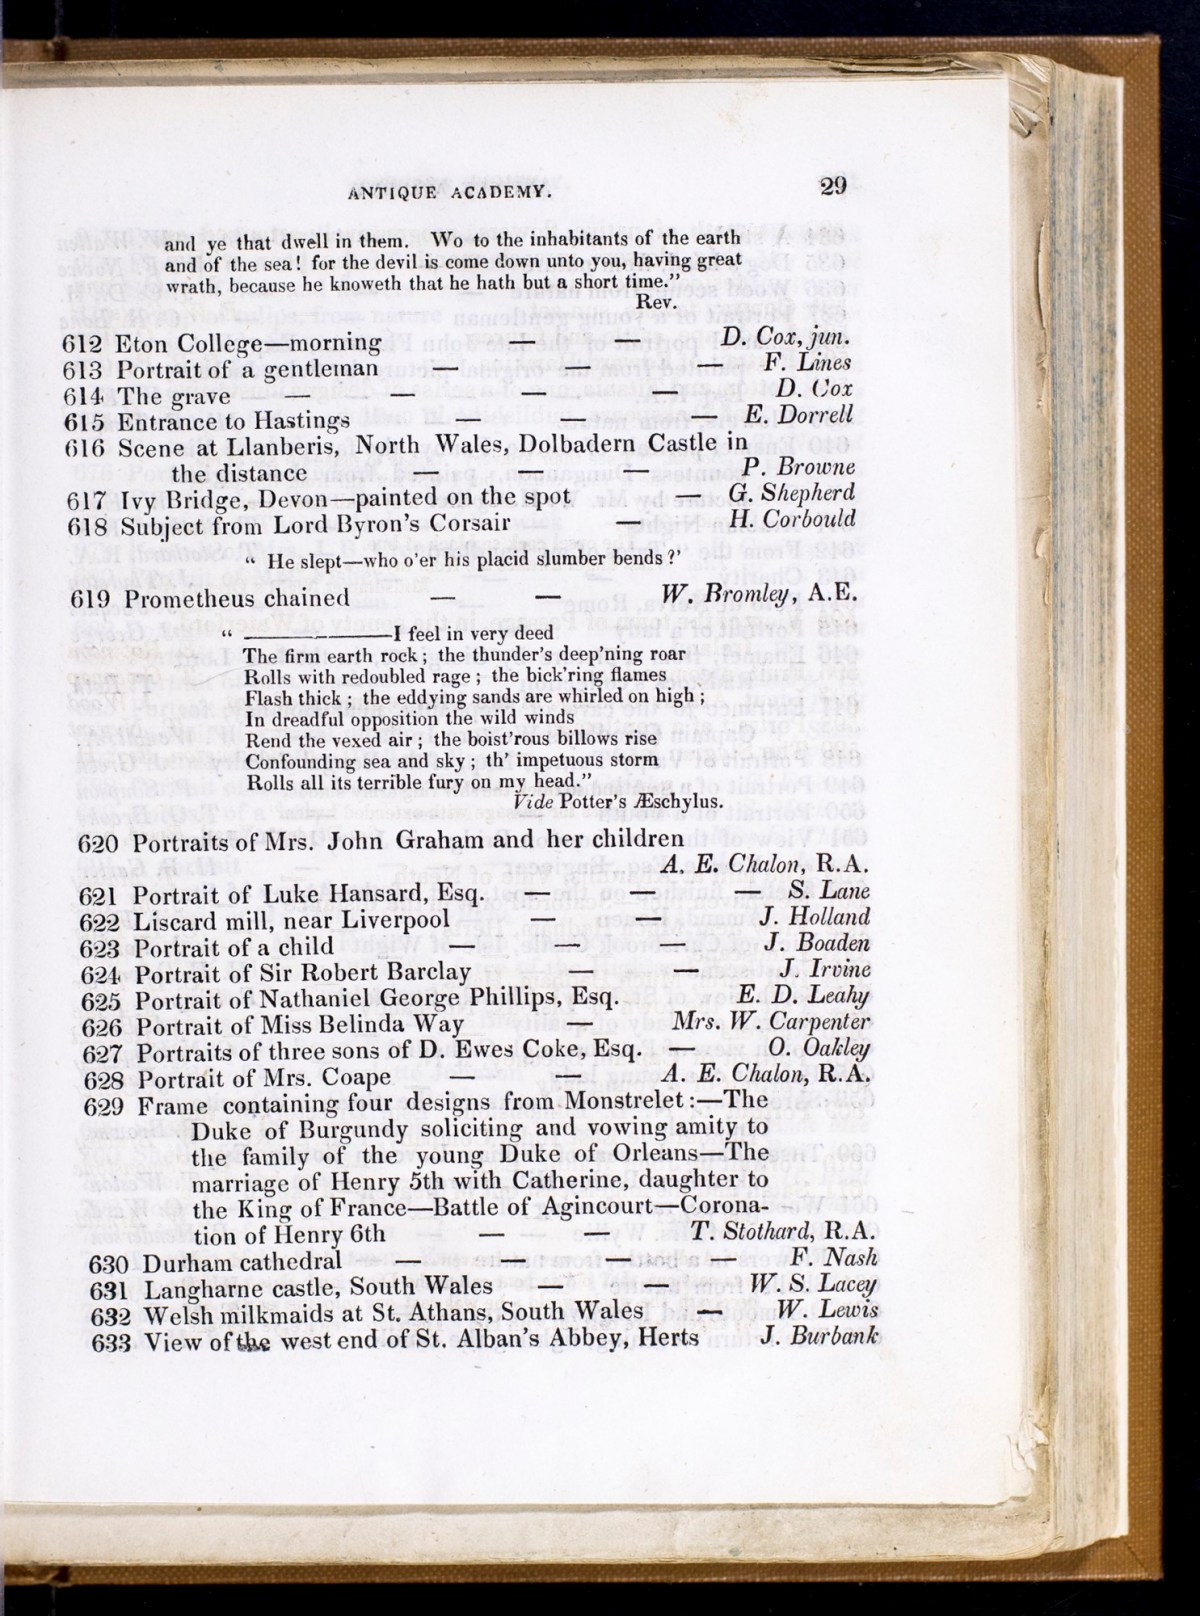 ANTIQUE ACADEMY. 29
and ye that dwell in them. Wo to the inhabitants of the earth
and of the sea! for the devil is come down unto you, having great
wrath, because he knoweth that he hath but a short time.”
Rev.
612 Eton College—morning — — D. Cox, jun.
613 Portrait of a gentleman — — — F. Lines
614 The grave — — — — D. Cox
615 Entrance to Hastings — — — E. Dorrell
616 Scene at Llanberis, North Wales, Dolbadern Castle in
the distance — — — P. Browne
617 Ivy Bridge, Devon—painted on the spot — G. Shepherd
618 Subject from Lord Byron’s Corsair — H. Corbould
“ He slept—who o’er his placid slumber bends ?’
619 Prometheus chained — — W. Bromley, A.E.
“ ——————I feel in very deed
The firm earth rock; the thunder’s deep’ning roar
Rolls with redoubled rage; the bick’ring flames
Flash thick; the eddying sands are whirled on high;
In dreadful opposition the wild winds
Rend the vexed air; the boist’rous billows rise
Confounding sea and sky; th’ impetuous storm
Rolls all its terrible fury on my head.”
Vide Potter’s Æschylus.
620 Portraits of Mrs. John Graham and her children
A. E. Chalon, R.A.
621 Portrait of Luke Hansard, Esq. — — — S. Lane
622 Liscard mill, near Liverpool — — J. Holland
623 Portrait of a child — — — J. Boaden
624 Portrait of Sir Robert Barclay — — J. Irvine
625 Portrait of Nathaniel George Phillips, Esq. E. D. Leahy
626 Portrait of Miss Belinda Way — Mrs. W. Carpenter
627 Portraits of three sons of D. Ewes Coke, Esq. — O. Oakley
628 Portrait of Mrs. Coape — — A. E. Chalon, R.A.
629 Frame containing four designs from Monstrelet:—The
Duke of Burgundy soliciting and vowing amity to
the family of the young Duke of Orleans—The
marriage of Henry 5th with Catherine, daughter to
the King of France—Battle of Agincourt—Corona-
tion of Henry 6th — — T. Stothard, R.A.
630 Durham cathedral — — — — F. Nash
631 Langharne castle, South Wales — — W. S. Lacey
632 Welsh milkmaids at St. Athans, South Wales — W. Lewis
633 View of the west end of St. Alban’s Abbey, Herts J. Burbank